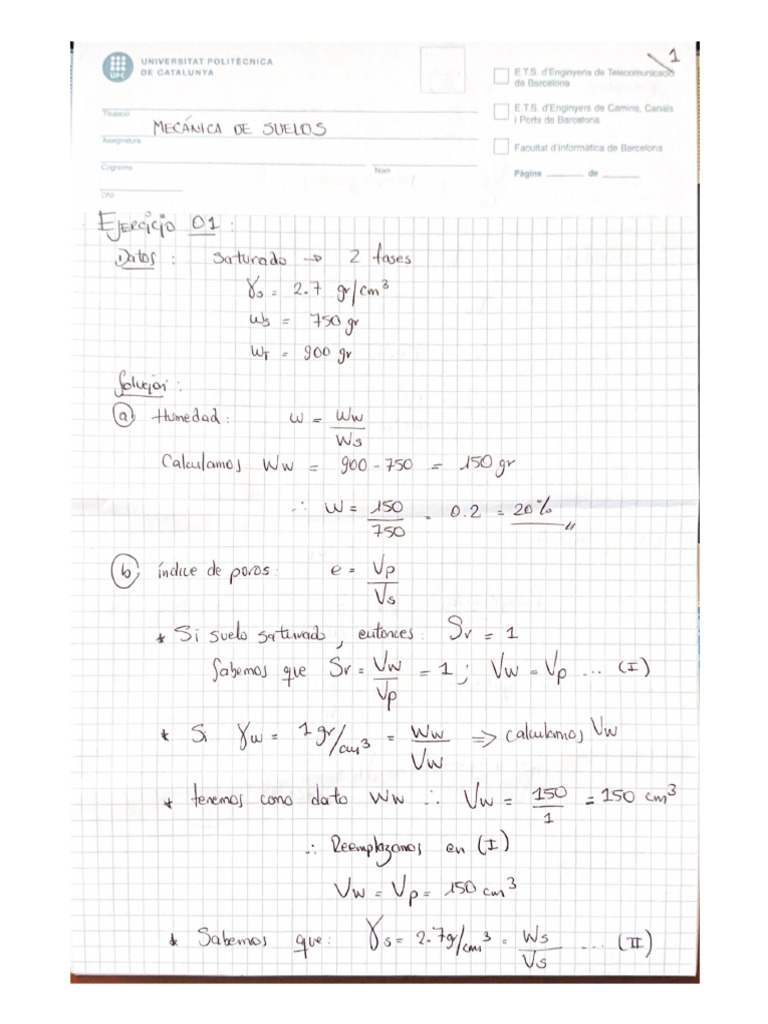 1
UNIVERSITAT POLITÈCNICA
DE CATALUNYA
UPC
E.T.S. d'Enginyeria de Telecomunicació
de Barcelona
E.T.S. d'Enginyers de Camins, Canals
i Ports de Barcelona
Facultat d'Informàtica de Barcelona
Pàgina ______ de ______
Titulació
MECÁNICA DE SUELOS
Assignatura
Cognoms Nom
DNI
EJERCICIO 01 :
Datos : saturado → 2 fases
γs = 2.7 gr/cm³
Ws = 750 gr
WT = 900 gr
Solución :
(a) Humedad : w = Ww/Ws
Calculamos Ww = 900 - 750 = 150 gr
∴ W = 150/750 = 0.2 = 20%
(b) índice de poros : e = Vp/Vs
* Si suelo saturado, entonces : Sr = 1
Sabemos que Sr = Vw/Vp = 1 ; Vw = Vp ... (I)
* Si γw = 1 gr/cm³ = Ww/Vw ⇒ calculamos Vw
* tenemos como dato Ww ∴ Vw = 150/1 = 150 cm³
∴ Reemplazamos en (I)
Vw = Vp = 150 cm³
* Sabemos que : γs = 2.7g/cm³ = Ws/Vs ... (II)